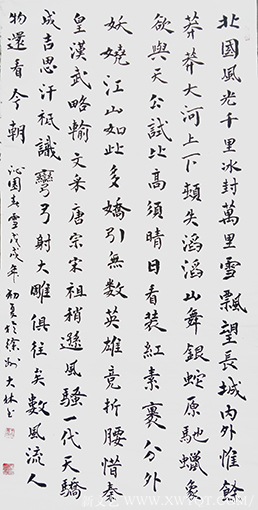 北國風光千里冰封萬里雪飄望長城内外惟餘
莽莽大河上下頓失滔滔山舞銀蛇原馳蠟象
欲與天公試比高須晴日看裝紅素裹分外
妖嬈江山如此多嬌引無數英雄竞折腰惜秦
皇漢武略輸文采唐宗宋祖稍遜風騷一代天驕
成吉思汗祗識彎弓射大雕俱往矣數風流人
物還看今朝
沁園春雪戊戌年初夏於徐州大林书